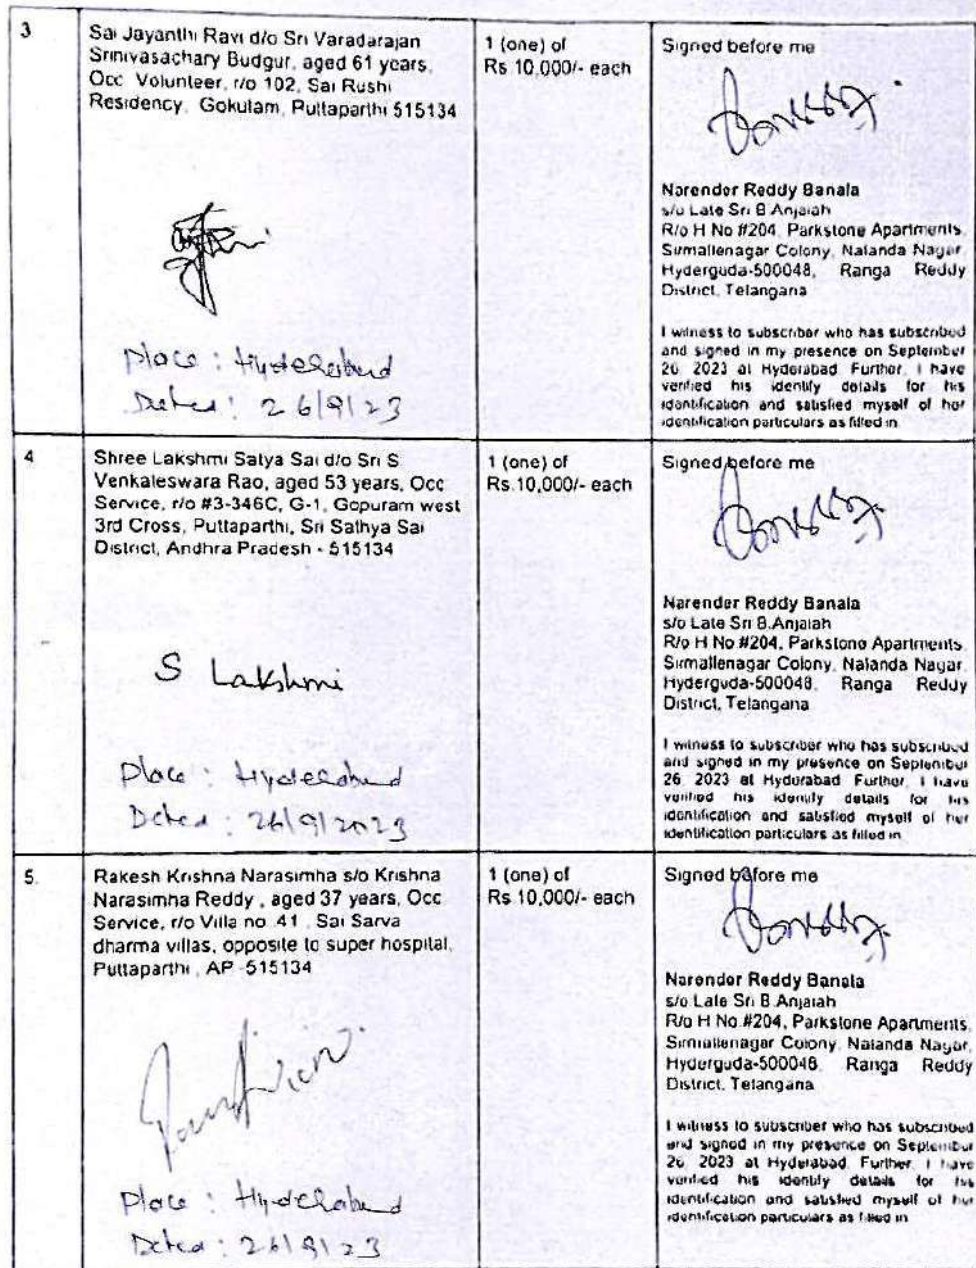 3
Sai Jayanthi Ravi d/o Sri Varadarajan
Srinivasachary Budgur, aged 61 years,
Occ Volunteer, r/o 102, Sai Rushi
Residency, Gokulam, Puttaparthi 515134
Place : Hyderabad
Dated : 26/9/23
1 (one) of
Rs 10,000/- each
Signed before me
Narender Reddy Banala
s/o Late Sri B Anjaiah
R/o H No #204, Parkstone Apartments,
Sirmallenagar Colony, Nalanda Nagar,
Hyderguda-500048, Ranga Reddy
District, Telangana
I witness to subscriber who has subscribed
and signed in my presence on September
26, 2023 at Hyderabad. Further, I have
verified his identity details for his
identification and satisfied myself of her
identification particulars as filled in
4
Shree Lakshmi Satya Sai d/o Sri S
Venkateswara Rao, aged 53 years, Occ
Service, r/o #3-346C, G-1, Gopuram west
3rd Cross, Puttaparthi, Sri Sathya Sai
District, Andhra Pradesh - 515134
S Lakshmi
Place : Hyderabad
Dated : 26/9/2023
1 (one) of
Rs.10,000/- each
Signed before me
Narender Reddy Banala
s/o Late Sri B.Anjaiah
R/o H No #204, Parkstone Apartments,
Sirmallenagar Colony, Nalanda Nagar,
Hyderguda-500048, Ranga Reddy
District, Telangana
I witness to subscriber who has subscribed
and signed in my presence on September
26, 2023 at Hyderabad. Further, I have
verified his identity details for his
identification and satisfied myself of her
identification particulars as filled in
5.
Rakesh Krishna Narasimha s/o Krishna
Narasimha Reddy , aged 37 years, Occ
Service, r/o Villa no 41 , Sai Sarva
dharma villas, opposite to super hospital,
Puttaparthi , AP -515134
Place : Hyderabad
Dated : 26/9/23
1 (one) of
Rs 10,000/- each
Signed before me
Narender Reddy Banala
s/o Late Sri B Anjaiah
R/o H No #204, Parkstone Apartments,
Sirmallenagar Colony, Nalanda Nagar,
Hyderguda-500048, Ranga Reddy
District, Telangana
I witness to subscriber who has subscribed
and signed in my presence on September
26, 2023 at Hyderabad. Further, I have
verified his identity details for his
identification and satisfied myself of her
identification particulars as filled in